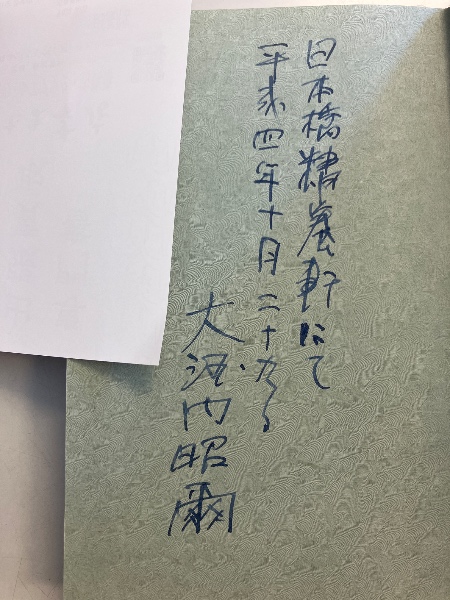 日本橋精養軒にて
平成四年十月二十九日
大河内昭爾